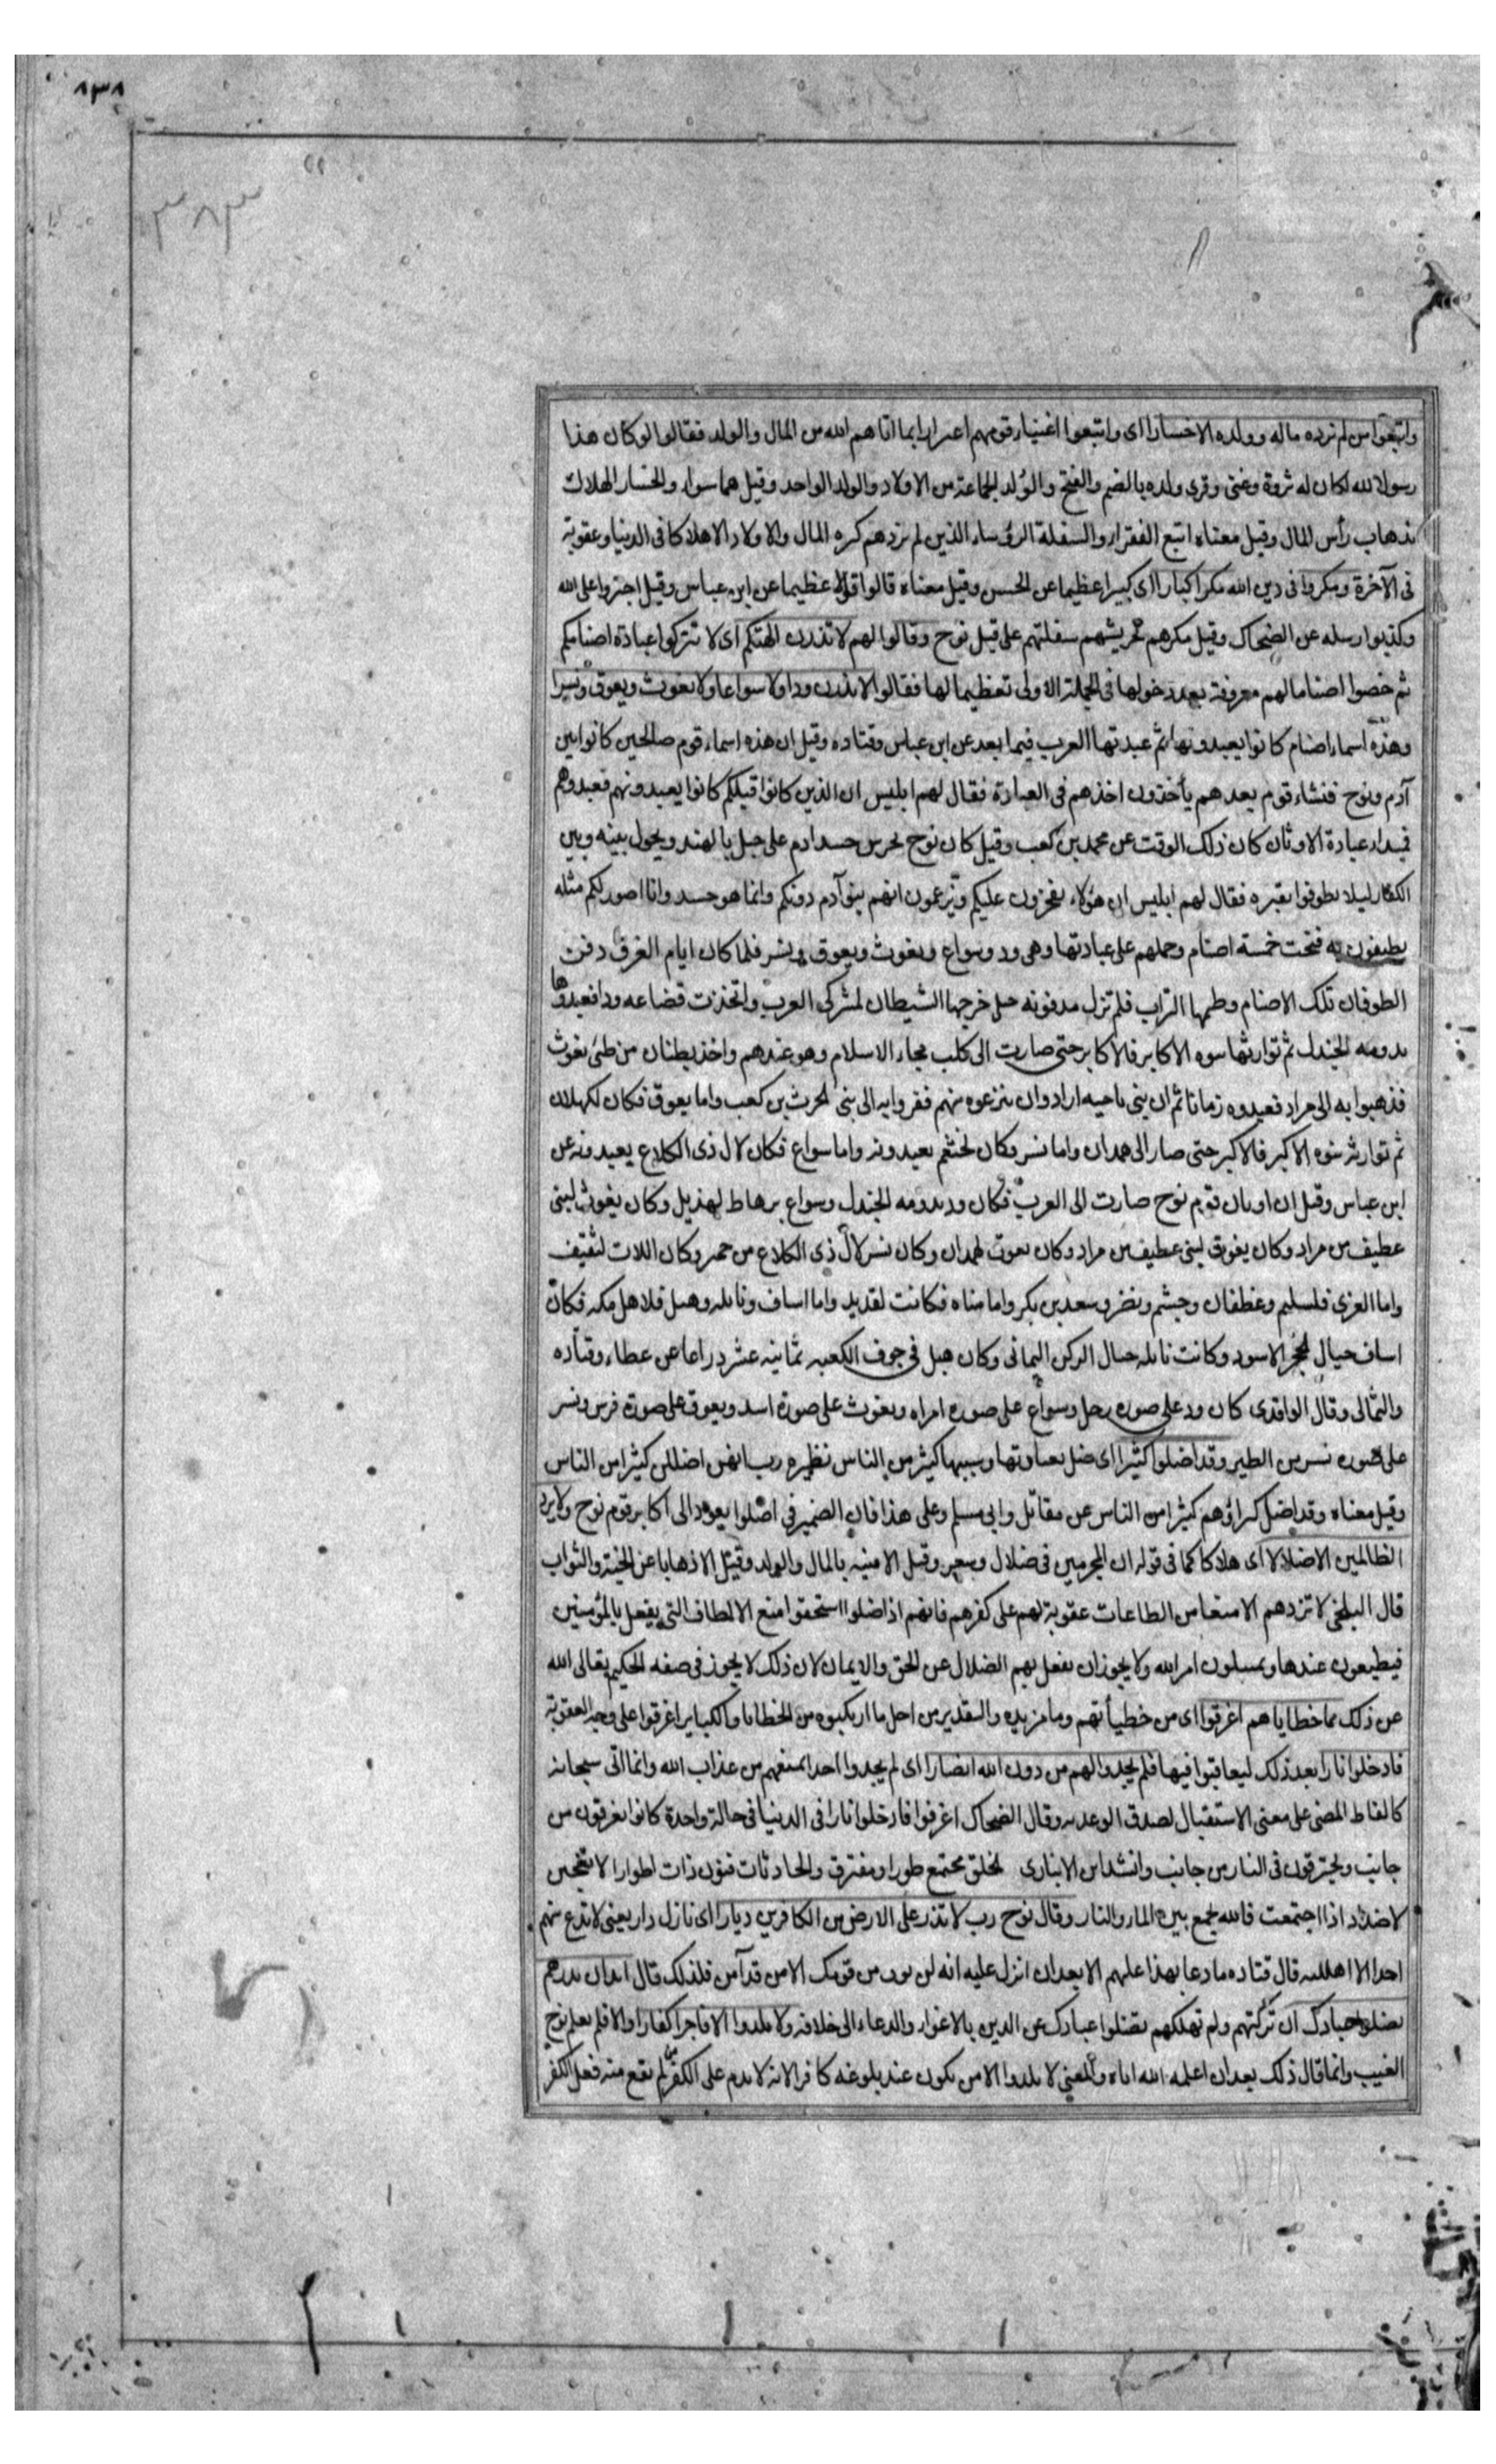 ٨٣٨
٣٨٣
واتبعوا من لم تزده ماله وولده الا خسارا اى واتبعوا اغنياء قومهم اغترارا بما اتاهم الله من المال والولد فقالوا لو كان هذا
رسولا لله لكان له ثروة وغنى وقرئ ولده بالضم والفتح والولد لجماعة من الاولاد والولد الواحد وقيل هما سواء والخسار الهلاك
بذهاب رأس المال وقيل معناه اتبع الفقراء والسفلة الرؤساء الذين لم تزدهم كثره المال والاولاد الا هلاكا فى الدنيا وعقوبة
فى الآخرة ومكروا فى دين الله مكرا كبارا اى كبيرا عظيما عن الحسن وقيل معناه قالوا قولا عظيما عن ابن عباس وقيل اجتروا على الله
وكذبوا رسله عن الضحاك وقيل مكرهم تحريشهم سفلتهم على قتل نوح وقالوا لهم لا تذرن الهتكم اى لا تتركوا عبادة اصنامكم
ثم خصوا اصناما لهم معروفة بعد دخولها فى الجملة الاولى تعظيما لها فقالوا لا تذرن ودا ولا سواعا ولا يغوث ويعوق ونسرا
وهذه اسماء اصنام كانوا يعبدونها ثم عبدتها العرب فيما بعد عن ابن عباس وقتاده وقيل ان هذه اسماء قوم صالحين كانوا بين
آدم ونوح فنشاء قوم بعدهم يأخذون اخذهم فى العبادة فقال لهم ابليس ان الذين كانوا قبلكم كانوا يعبدونهم فعبدوهم
فبداء عبادة الاوثان كان ذلك الوقت عن محمد بن كعب وقيل كان نوح يحرس جسد ادم على جبل بالهند ويحول بينه وبين
الكفار ليلا يطوفوا بقبره فقال لهم ابليس ان هؤلاء يفخرون عليكم ويزعمون انهم بنو آدم دونكم وانما هو جسد وانا اصور لكم مثله
يطيفون به فنحت خمسة اصنام وحملهم على عبادتها وهى ود وسواع ويغوث ويعوق ونسر فلما كان ايام الغرق دفن
الطوفان تلك الاصنام وطمها التراب فلم تزل مدفونه حتى خرجها الشيطان لمشركى العرب واتخذت قضاعه ودا فعبدوها
بدومه الجندل ثم توارثها بنوه الاكابر فالاكابر حتى صارت الى كلب فجاء الاسلام وهو عندهم واخذ بطنان من طئ يغوث
فذهبوا به الى مراد فعبدوه زمانا ثم ان بنى ناجيه ارادوا ان ينزعوه منهم ففروا به الى بنى الحرث بن كعب واما يعوق فكان لكهلان
ثم توارثه بنوه الاكبر فالاكبر حتى صار الى همدان واما نسر فكان لخثعم يعبدونه واما سواع فكان لال ذى الكلاع يعبدونه عن
ابن عباس وقيل ان اوثان قوم نوح صارت الى العرب فكان ود بدومه الجندل وسواع برهاط لهذيل وكان يغوث لبنى
غطيف من مراد وكان يغوق لبنى غطيف من مراد وكان يعوق لهمدان وكان نسر لال ذى الكلاع من حمير وكان اللات لثقيف
واما العزى فلسليم وغطفان وجشم ونضر وسعد بن بكر واما مناه فكانت لقديد واما اساف ونائله وهبل فلاهل مكه فكان
اساف حيال الحجر الاسود وكانت نائله حيال الركن اليمانى وكان هبل فى جوف الكعبه ثمانيه عشر ذراعا عن عطاء وقتاده
والثمالى وقال الواقدى كان ود على صوره رجل وسواع على صوره امراه ويغوث على صورة اسد ويعوق على صورة فرس ونسر
على صوره نسر من الطير وقد اضلوا كثيرا اى ضل بعبادتها وبسببها كثير من الناس نظيره رب انهن اضللن كثيرا من الناس
وقيل معناه وقد اضل كبراؤهم كثيرا من الناس عن مقاتل وابى مسلم وعلى هذا فان الضمير فى اضلوا يعود الى اكابر قوم نوح ولا يزد
الظالمين الا ضلالا اى هلاكا كما فى قوله ان المجرمين فى ضلال وسعر وقيل الا فتنه بالمال والولد وقيل الا ذهابا عن الجنة والثواب
قال البلخى لا تزدهم الا منعا من الطاعات عقوبة لهم على كفرهم فانهم اذا ضلوا استحقوا منع الالطاف التى يفعل بالمؤمنين
فيطيعون عندها ويمتثلون امر الله ولا يجوز ان يفعل بهم الضلال عن الحق والايمان لان ذلك لا يجوز فى صفه الحكيم تعالى الله
عن ذلك مما خطاياهم اغرقوا اى من خطيأتهم وما مزيده والتقدير من اجل ما ارتكبوه من الخطايا والكبايراغرقوا على وجه العقوبة
فادخلوا نارا بعد ذلك ليعاقبوا فيها فلم يجدوا لهم من دون الله انصارا اى لم يجدوا احدا يمنعهم من عذاب الله وانما اتى سبحانه
كالفاظ المضى على معنى الاستقبال لصدق الوعد به وقال الضحاك اغرقوا فادخلوا نارا فى الدنيا فى حالة واحدة كانوا يغرقون من
جانب ويحترقون فى النار من جانب وانشد ابن الانبارى الخلق مجتمع طورا ومفترق والحادثات فنون ذات اطوار لا تعجبن
لاضداد اذا اجتمعت فالله يجمع بين الماء والنار وقال نوح رب لا تذر على الارض من الكافرين ديارا اى نازل دار يعنى لا تدع منهم
احدا الا اهلكته قال قتاده ما دعا بهذا عليهم الا بعد ان انزل عليه انه لن يومن من قومك الا من قد آمن فلذلك قال انك ان تذرهم
يضلوا عبادك ان تركتهم ولم تهلكهم يضلوا عبادك عن الدين بالاغواء والدعاء الى خلافه ولا يلدوا الا فاجرا كفارا والا فلم يعلم نوح
الغيب وانما قال ذلك بعد ان اعلمه الله اياه والمعنى لا يلدوا الا من يكون عند بلوغه كافرا لانه لا يذم على الكفر من لم يقع منه فعل الكفر